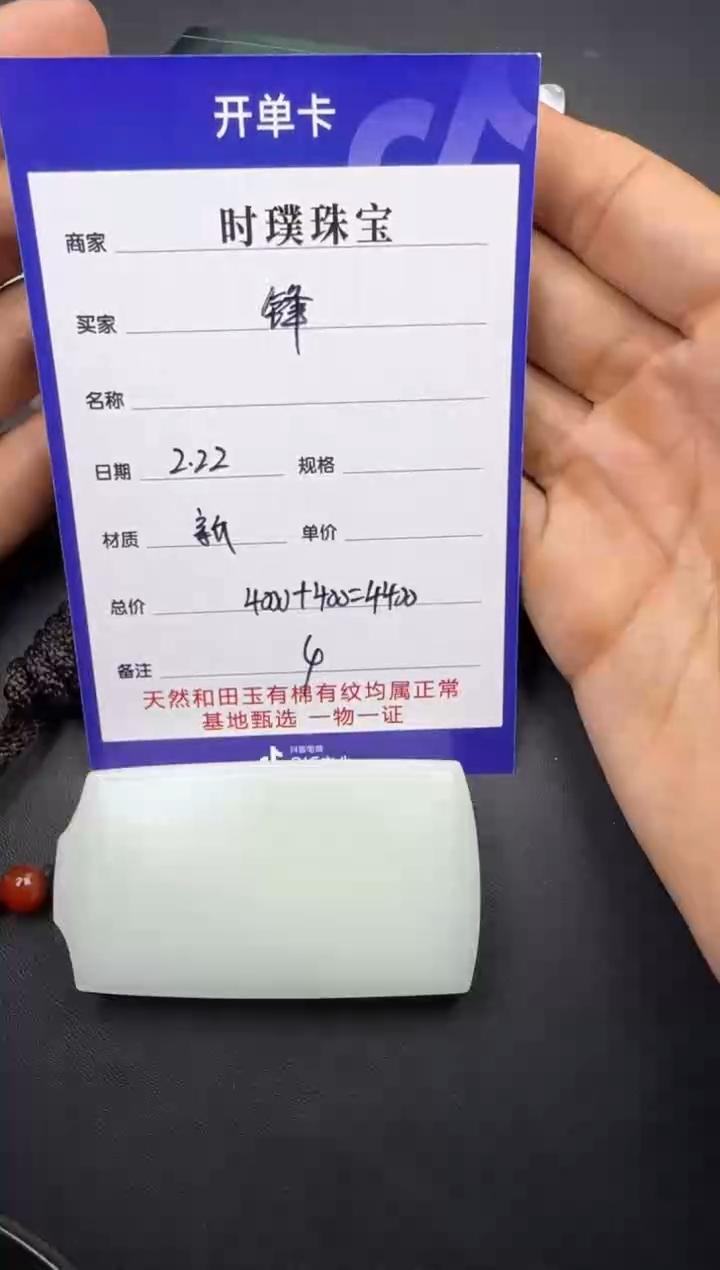 开单卡
商家 时璞珠宝
买家 锋
名称
日期 2.22 规格
材质 新 单价
总价 4000+400=4400
备注 4
天然和田玉有棉有纹均属正常
基地甄选 一物一证
抖音电商